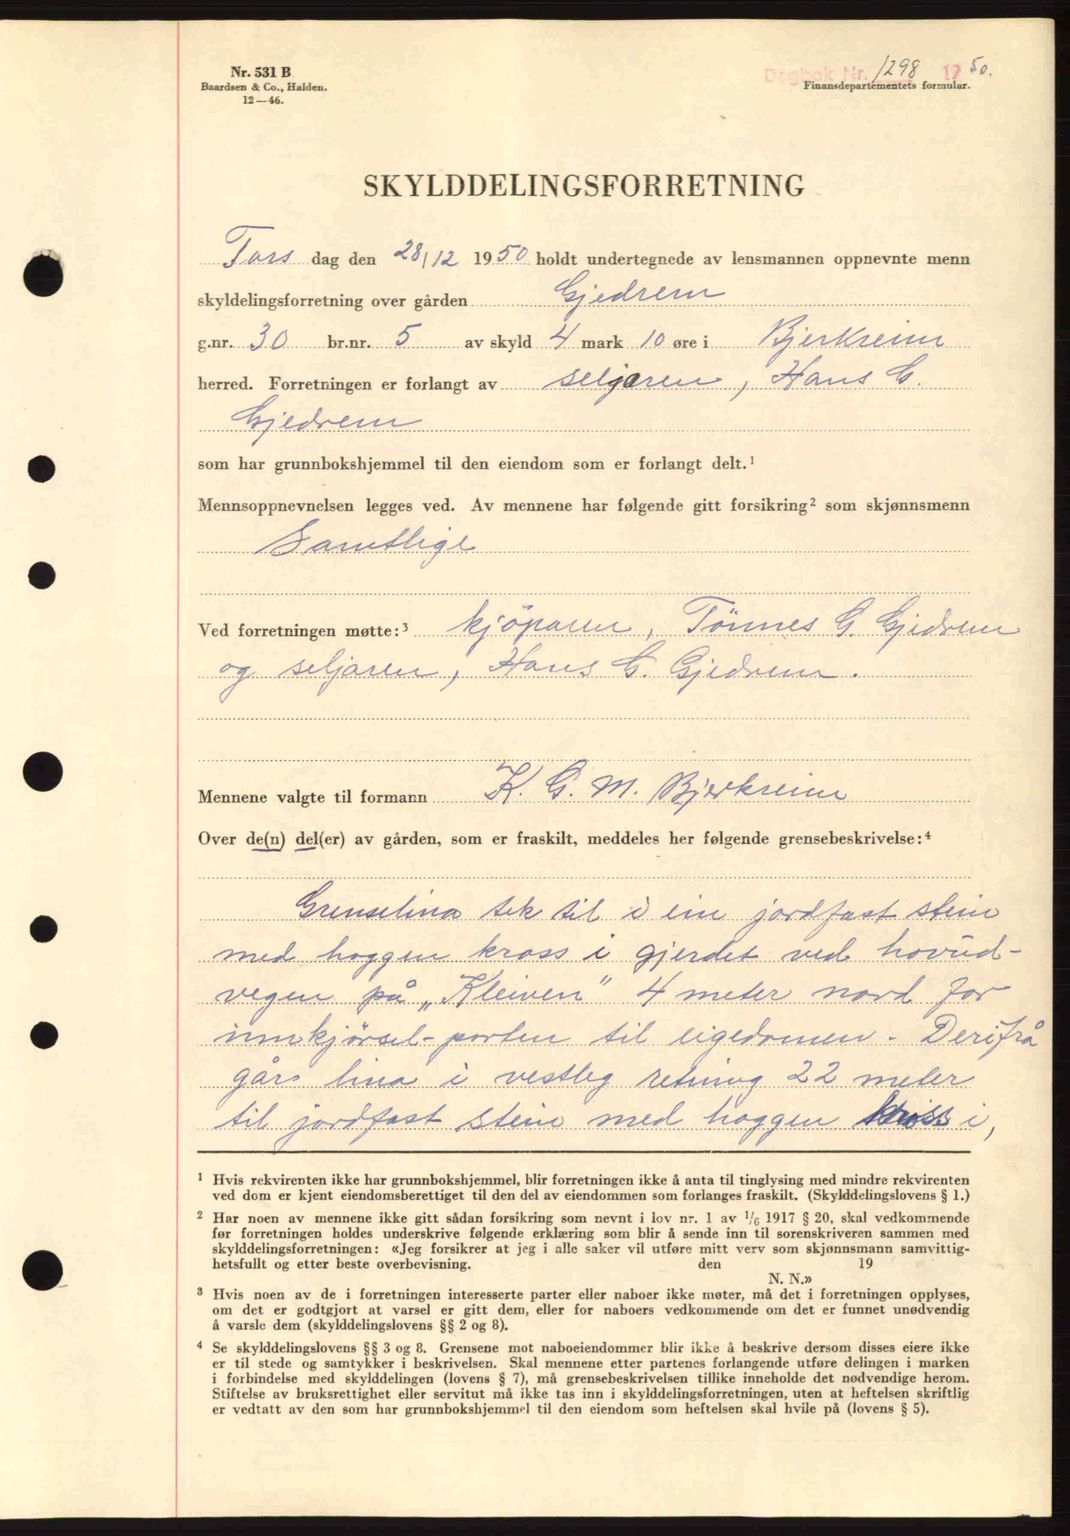 Nr. 531 B
Baardsen & Co., Halden.
12—46.
Dagbok Nr. 1298 1950.
Finansdepartementets formular.
SKYLDDELINGSFORRETNING
Tors dag den 28/12 1950 holdt undertegnede av lensmannen oppnevnte menn
skyldelingsforretning over gården Gjedrem
g.nr. 30 br.nr. 5 av skyld 4 mark 10 øre i Bjerkreim
herred. Forretningen er forlangt av seljaren, Hans G.
Gjedrem
som har grunnbokshjemmel til den eiendom som er forlangt delt.¹
Mennsoppnevnelsen legges ved. Av mennene har følgende gitt forsikring² som skjønnsmenn
Samtlige
Ved forretningen møtte:³ kjöparen, Tönnes G. Gjedrem
og seljaren, Hans G. Gjedrem.
Mennene valgte til formann K. G. M. Bjerkreim
Over de(n) del(er) av gården, som er fraskilt, meddeles her følgende grensebeskrivelse:⁴
Grenselina tek til i ein jordfast stein
med hoggen kross i gjerdet ved hovud-
vegen på „Kleiven" 4 meter nord for
innkjörsel-porten til eigedomen. Derifrå
går lina i vestleg retning 22 meter
til jordfast stein med hoggen kross i,
¹ Hvis rekvirenten ikke har grunnbokshjemmel, blir forretningen ikke å anta til tinglysing med mindre rekvirenten
ved dom er kjent eiendomsberettiget til den del av eiendommen som forlanges fraskilt. (Skylddelingslovens § 1.)
² Har noen av mennene ikke gitt sådan forsikring som nevnt i lov nr. 1 av 1/6 1917 § 20, skal vedkommende
før forretningen holdes underskrive følgende erklæring som blir å sende inn til sorenskriveren sammen med
skylddelingsforretningen: «Jeg forsikrer at jeg i alle saker vil utføre mitt verv som skjønnsmann samvittig-
hetsfullt og etter beste overbevisning. den 19
N. N.»
³ Hvis noen av de i forretningen interesserte parter eller naboer ikke møter, må det i forretningen opplyses,
om det er godtgjort at varsel er gitt dem, eller for naboers vedkommende om det er funnet unødvendig
å varsle dem (skylddelingslovens §§ 2 og 8).
⁴ Se skylddelingslovens §§ 3 og 8. Grensene mot naboeiendommer blir ikke å beskrive dersom disses eiere ikke
er til stede og samtykker i beskrivelsen. Skal mennene etter partenes forlangende utføre delingen i marken
i forbindelse med skylddelingen (lovens § 7), må grensebeskrivelsen tillike inneholde det nødvendige herom.
Stiftelse av bruksrettighet eller servitut må ikke tas inn i skylddelingsforretningen, uten at heftelsen skriftlig
er vedtatt av den som har grunnbokshjemmel til den eiendom som heftelsen skal hvile på (lovens § 5).